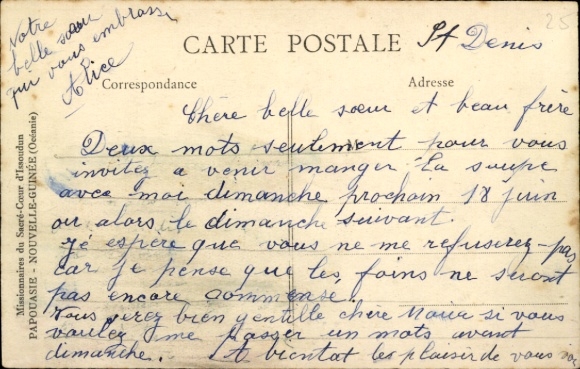 Notre
belle sœur
qui vous embrasse
Alice
CARTE POSTALE
St Denis
25
Correspondance
Adresse
Missionnaires du Sacré-Cœur d'Issoudun
PAPOUASIE - NOUVELLE-GUINÉE (Océanie)
Chère belle sœur et beau frère
Deux mots seulement pour vous
invitez a venir manger la soupe
avec moi dimanche prochain 18 juin
ou alors le dimanche suivant.
jé espere que vous ne me refuserez-pas
car je pense que les foins ne seront
pas encore commensé.
Vous serez bien gentille chère si vous
voulez me passer un mots avant
dimanche. A bientot les plaisir de vous